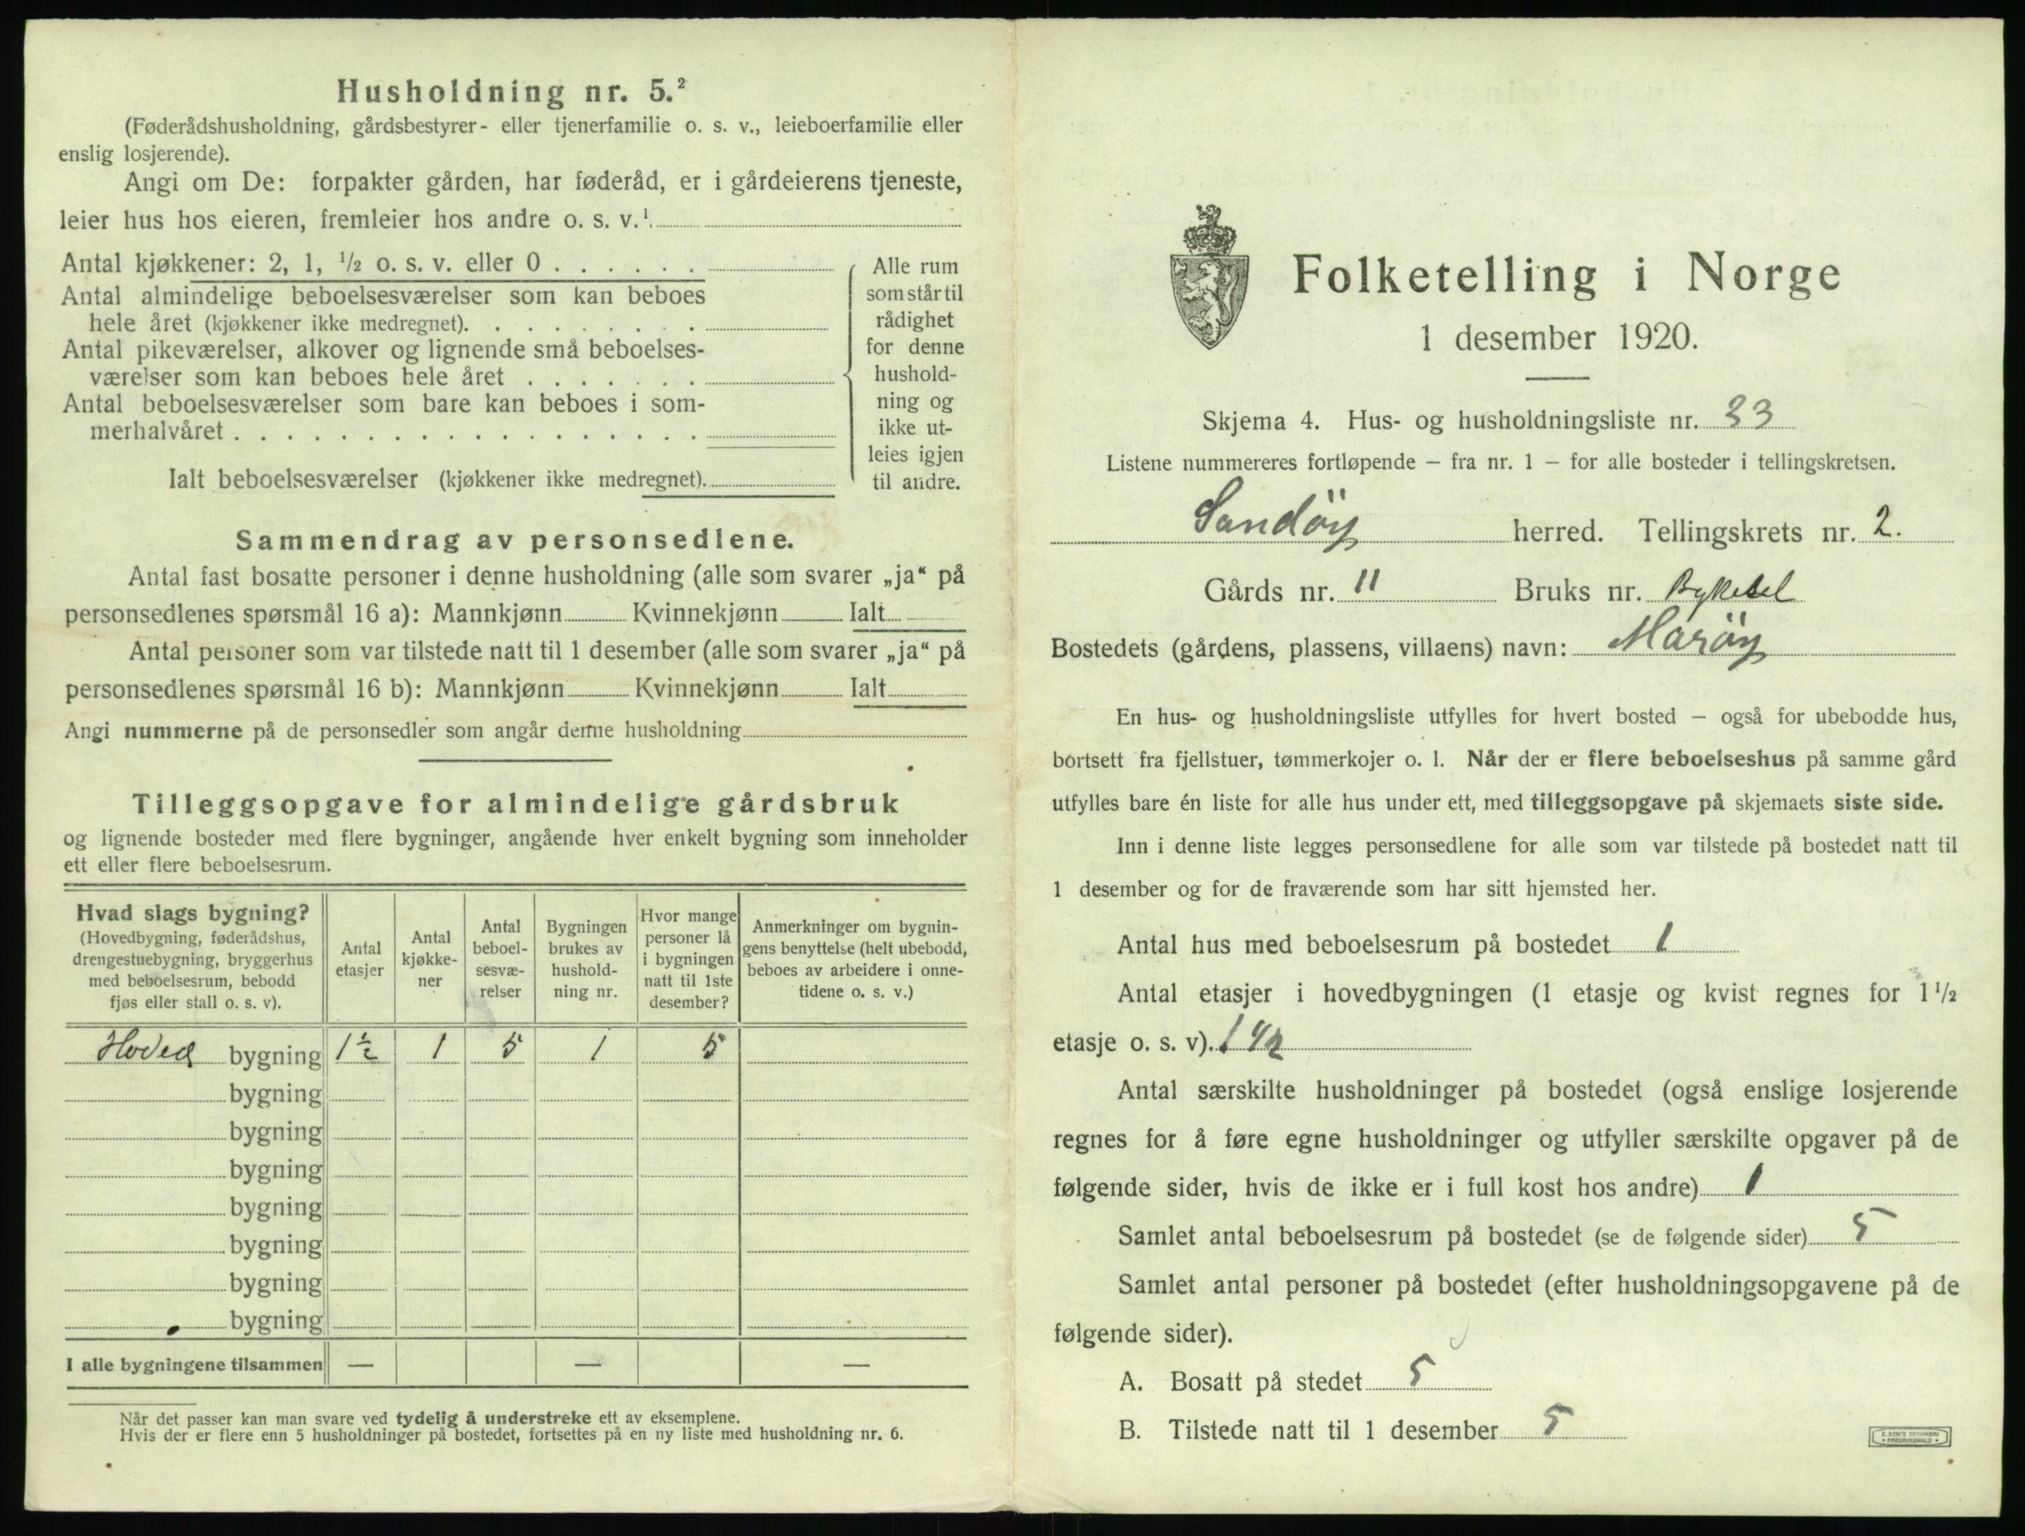 Husholdning nr. 5.²
(Føderådshusholdning, gårdsbestyrer- eller tjenerfamilie o. s. v., leieboerfamilie eller
enslig losjerende).
Angi om De: forpakter gården, har føderåd, er i gårdeierens tjeneste,
leier hus hos eieren, fremleier hos andre o. s. v.¹
Antal kjøkkener: 2, 1, ½ o. s. v. eller 0 . . . . . .
Antal almindelige beboelsesværelser som kan beboes
hele året (kjøkkener ikke medregnet). . . . . . . . .
Antal pikeværelser, alkover og lignende små beboelses-
værelser som kan beboes hele året . . . . . . .
Antal beboelsesværelser som bare kan beboes i som-
merhalvåret . . . . . . . . . . . . . . . . . .
Ialt beboelsesværelser (kjøkkener ikke medregnet).
Alle rum
som står til
rådighet
for denne
hushold-
ning og
ikke ut-
leies igjen
til andre.
Sammendrag av personsedlene.
Antal fast bosatte personer i denne husholdning (alle som svarer „ja“ på
personsedlenes spørsmål 16 a): Mannkjønn Kvinnekjønn Ialt
Antal personer som var tilstede natt til 1 desember (alle som svarer „ja“ på
personsedlenes spørsmål 16 b): Mannkjønn Kvinnekjønn Ialt
Angi nummerne på de personsedler som angår denne husholdning
Tilleggsopgave for almindelige gårdsbruk
og lignende bosteder med flere bygninger, angående hver enkelt bygning som inneholder
ett eller flere beboelsesrum.
Hvad slags bygning?
(Hovedbygning, føderådshus,
drengestuebygning, bryggerhus
med beboelsesrum, bebodd
fjøs eller stall o. s. v).
Antal
etasjer
Antal
kjøkke-
ner
Antal
beboel-
sesvæ-
relser
Bygningen
brukes av
hushold-
ning nr.
Hvor mange
personer lå
i bygningen
natt til 1ste
desember?
Anmerkninger om bygnin-
gens benyttelse (helt ubebodd,
beboes av arbeidere i onne-
tidene o. s. v.)
Hoved bygning 1½ 1 5 1 5
bygning
bygning
bygning
bygning
bygning
bygning
bygning
I alle bygningene tilsammen — — —
Når det passer kan man svare ved tydelig å understreke ett av eksemplene.
Hvis der er flere enn 5 husholdninger på bostedet, fortsettes på en ny liste med husholdning nr. 6.
Folketelling i Norge
1 desember 1920.
Skjema 4. Hus- og husholdningsliste nr. 33
Listene nummereres fortløpende – fra nr. 1 – for alle bosteder i tellingskretsen.
Sandöy herred. Tellingskrets nr. 2.
Gårds nr. 11 Bruks nr. Bykslet
Bostedets (gårdens, plassens, villaens) navn: Maröy
En hus- og husholdningsliste utfylles for hvert bosted – også for ubebodde hus,
bortsett fra fjellstuer, tømmerkojer o. l. Når der er flere beboelseshus på samme gård
utfylles bare én liste for alle hus under ett, med tilleggsopgave på skjemaets siste side.
Inn i denne liste legges personsedlene for alle som var tilstede på bostedet natt til
1 desember og for de fraværende som har sitt hjemsted her.
Antal hus med beboelsesrum på bostedet 1
Antal etasjer i hovedbygningen (1 etasje og kvist regnes for 1½
etasje o. s. v). 1 1/2
Antal særskilte husholdninger på bostedet (også enslige losjerende
regnes for å føre egne husholdninger og utfyller særskilte opgaver på de
følgende sider, hvis de ikke er i full kost hos andre) 1
Samlet antal beboelsesrum på bostedet (se de følgende sider) 5
Samlet antal personer på bostedet (efter husholdningsopgavene på de
følgende sider).
A. Bosatt på stedet 5
B. Tilstede natt til 1 desember 5